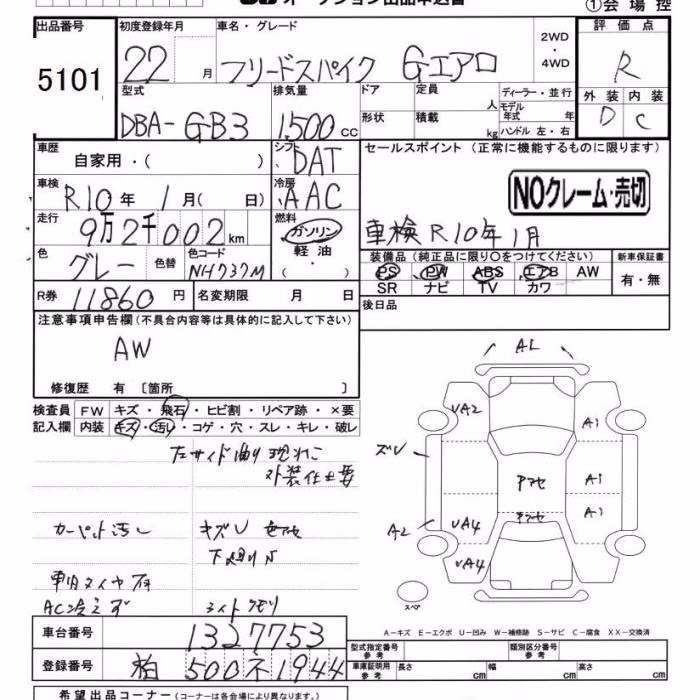 オークション出品申込書 ①会場控
出品番号 5101
初度登録年月 22 月
車名・グレード フリードスパイク Gエアロ
2WD・4WD
評価点 R
外装 D 内装 C
型式 DBA-GB3
排気量 1500 cc
ドア 形状
定員 人 積載 kg
ディーラー・並行
モデル年式 年
ハンドル 左・右
車歴 自家用・( )
シフト DAT
車検 R10年 1月( 日)
冷房 AAC
走行 9万2千002 km
燃料 ガソリン 軽油・( )
色 グレー 色替 色コード NH737M
R券 11860 円 名変期限 月 日
セールスポイント (正常に機能するものに限ります)
NOクレーム・売切
車検 R10年1月
装備品 (純正品に限り〇をつけてください)
新車保証書 有・無
PS PW ABS エアB AW
SR ナビ TV カワ
後日品
注意事項申告欄 (不具合内容等は具体的に記入して下さい)
AW
修復歴 有 〔箇所 〕
検査員記入欄
FW キズ・飛石・ヒビ割・リペア跡・×要
内装 キズ・汚レ・コゲ・穴・スレ・キレ・破レ
左サイド曲り
外装仕上要
カーペット汚レ キズU 色アセ
下廻りS
車内タイヤ有
AC冷えず ライトクモリ
AL
UA2 A1
ズU
Pアセ A1
A1
A2 UA4
UA4
スペア
A-キズ E-エクボ U-凹み W-補修跡 S-サビ C-腐食 XX-交換済
車台番号 1327753
登録番号 柏 500 不 1944
型式指定番号 参考 類別区分番号 参考
車庫証明用 参考 長さ cm 幅 cm 高さ cm
希望出品コーナー (コーナーは各会場により異なります。)